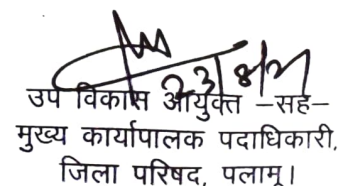 23/8/21
उप विकास आयुक्त –सह–
मुख्य कार्यापालक पदाधिकारी,
जिला परिषद, पलामू।